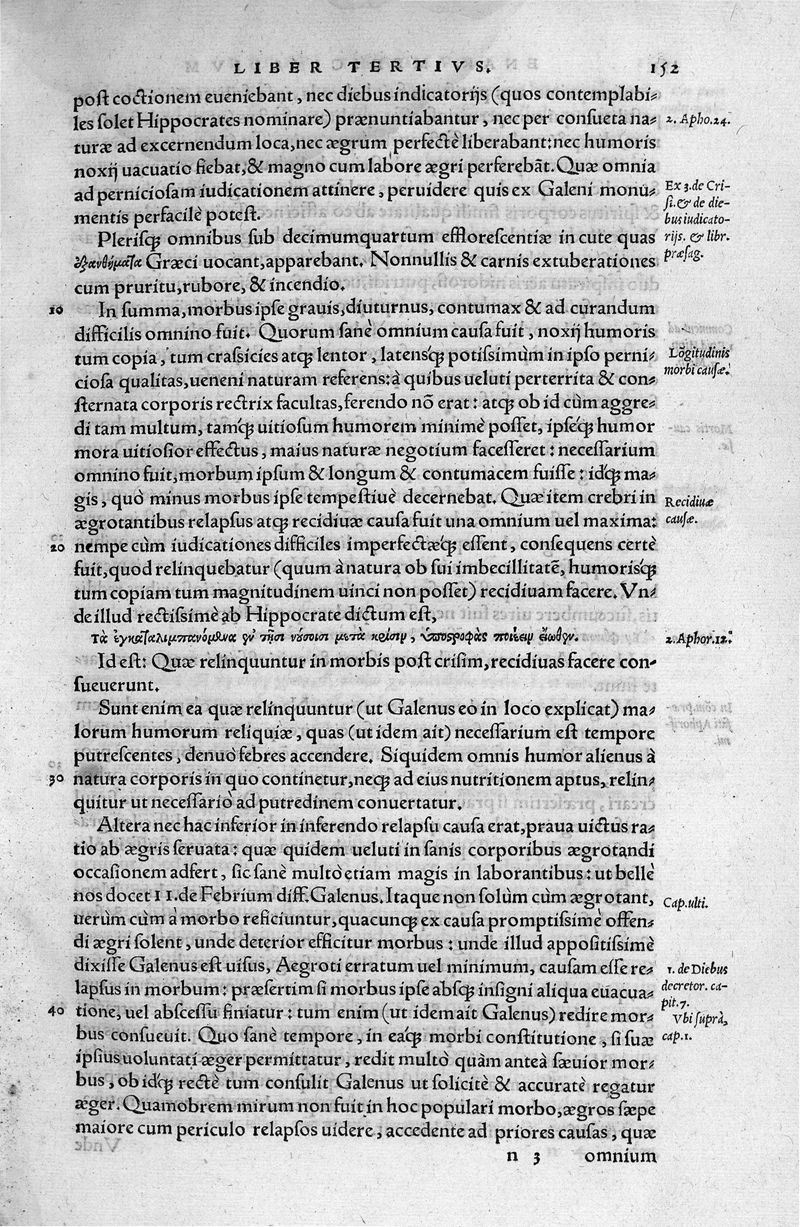 LIBER TERTIVS. 152
post coctionem eueniebant, nec diebus indicatorijs (quos contemplabi-
les solet Hippocrates nominare) prænuntiabantur, nec per consueta na- 2. Apho. 24.
turæ ad excernendum loca, nec ægrum perfectè liberabant: nec humoris
noxij uacuatio fiebat, & magno cum labore ægri perferebāt. Quæ omnia
ad perniciosam iudicationem attinere, peruidere quis ex Galeni monu- Ex 3. de Cri-
si. & de die-
mentis perfacilè potest. bus iudicato-
Plerisq; omnibus sub decimumquartum efflorescentiæ in cute quas rijs. & libr.
ἐξανθήματα Græci uocant, apparebant. Nonnullis & carnis extuberationes præsag.
cum pruritu, rubore, & incendio.
10 In summa, morbus ipse grauis, diuturnus, contumax & ad curandum
difficilis omnino fuit. Quorum sanè omnium causa fuit, noxij humoris
tum copia, tum crassicies atq; lentor, latensq́; potissimùm in ipso perni- Lōgitudinis
ciosa qualitas, ueneni naturam referens: à quibus ueluti perterrita & con- morbi causæ.
sternata corporis rectrix facultas, ferendo nō erat: atq; ob id cùm aggre-
di tam multum, tamq́; uitiosum humorem minimè posset, ipseq́; humor
mora uitiosior effectus, maius naturæ negotium facesseret: necessarium
omnino fuit, morbum ipsum & longum & contumacem fuisse: idq́; ma-
gis, quò minus morbus ipse tempestiuè decernebat. Quæ item crebri in Recidiuæ
ægrotantibus relapsus atq; recidiuæ causa fuit una omnium uel maxima: causæ.
20 nempe cùm iudicationes difficiles imperfectæq́; essent, consequens certè
fuit, quod relinquebatur (quum à natura ob sui imbecillitatē, humorisq́;
tum copiam tum magnitudinem uinci non posset) recidiuam facere. Vn-
de illud rectissimè ab Hippocrate dictum est,
τὰ ἐγκαταλιμπανόμενα ἐν τῇσι νούσοισι μετὰ κρίσιν, ὑποστροφὰς ποιέειν εἴωθεν. 2. Aphor. 12.
Id est: Quæ relinquuntur in morbis post crisim, recidiuas facere con-
sueuerunt.
Sunt enim ea quæ relinquuntur (ut Galenus eo in loco explicat) ma-
lorum humorum reliquiæ, quas (ut idem ait) necessarium est tempore
putrescentes, denuò febres accendere. Siquidem omnis humor alienus à
30 natura corporis in quo continetur, neq; ad eius nutritionem aptus, relin-
quitur ut necessariò ad putredinem conuertatur.
Altera nec hac inferior in inferendo relapsu causa erat, praua uictus ra-
tio ab ægris seruata: quæ quidem ueluti in sanis corporibus ægrotandi
occasionem adfert, sic sanè multò etiam magis in laborantibus: ut bellè
nos docet 11. de Febrium diff. Galenus. Itaque non solùm cùm ægrotant, Cap. ulti.
uerùm cùm à morbo reficiuntur, quacunq; ex causa promptissimè offen-
di ægri solent, unde deterior efficitur morbus: unde illud appositissimè
dixisse Galenus est uisus, Aegroti erratum uel minimum, causam esse re- 1. de Diebus
lapsus in morbum: præsertim si morbus ipse absq; insigni aliqua euacua- decretor. ca-
pit. 7.
40 tione, uel abscessu finiatur: tum enim (ut idem ait Galenus) redire mor- Vbi suprà,
bus consueuit. Quo sanè tempore, in eaq́; morbi constitutione, si suæ cap. 1.
ipsius uoluntati æger permittatur, redit multò quàm anteà sæuior mor-
bus, ob idq́; rectè tum consulit Galenus ut solicitè & accuratè regatur
æger. Quamobrem mirum non fuit in hoc populari morbo, ægros sæpe
maiore cum periculo relapsos uidere, accedente ad priores causas, quæ
n 3 omnium